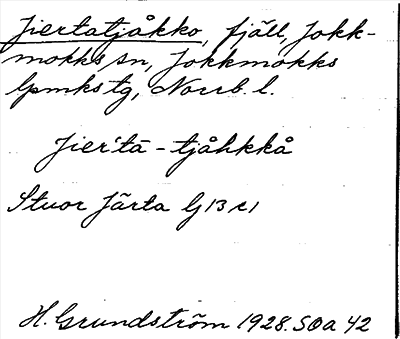 Jiertatjåkko, fjäll, Jokk-
mokks sn, Jokkmokks
lpmks tg, Norrb. l.
Jier'ta - tjåhkkå
Stuor Järta G 13 c 1
H. Grundström 1928. SOa 42